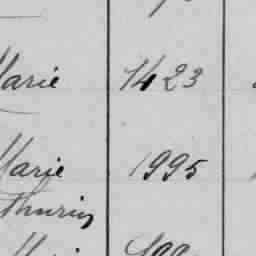 Marie 1423
Marie 1995
thurin